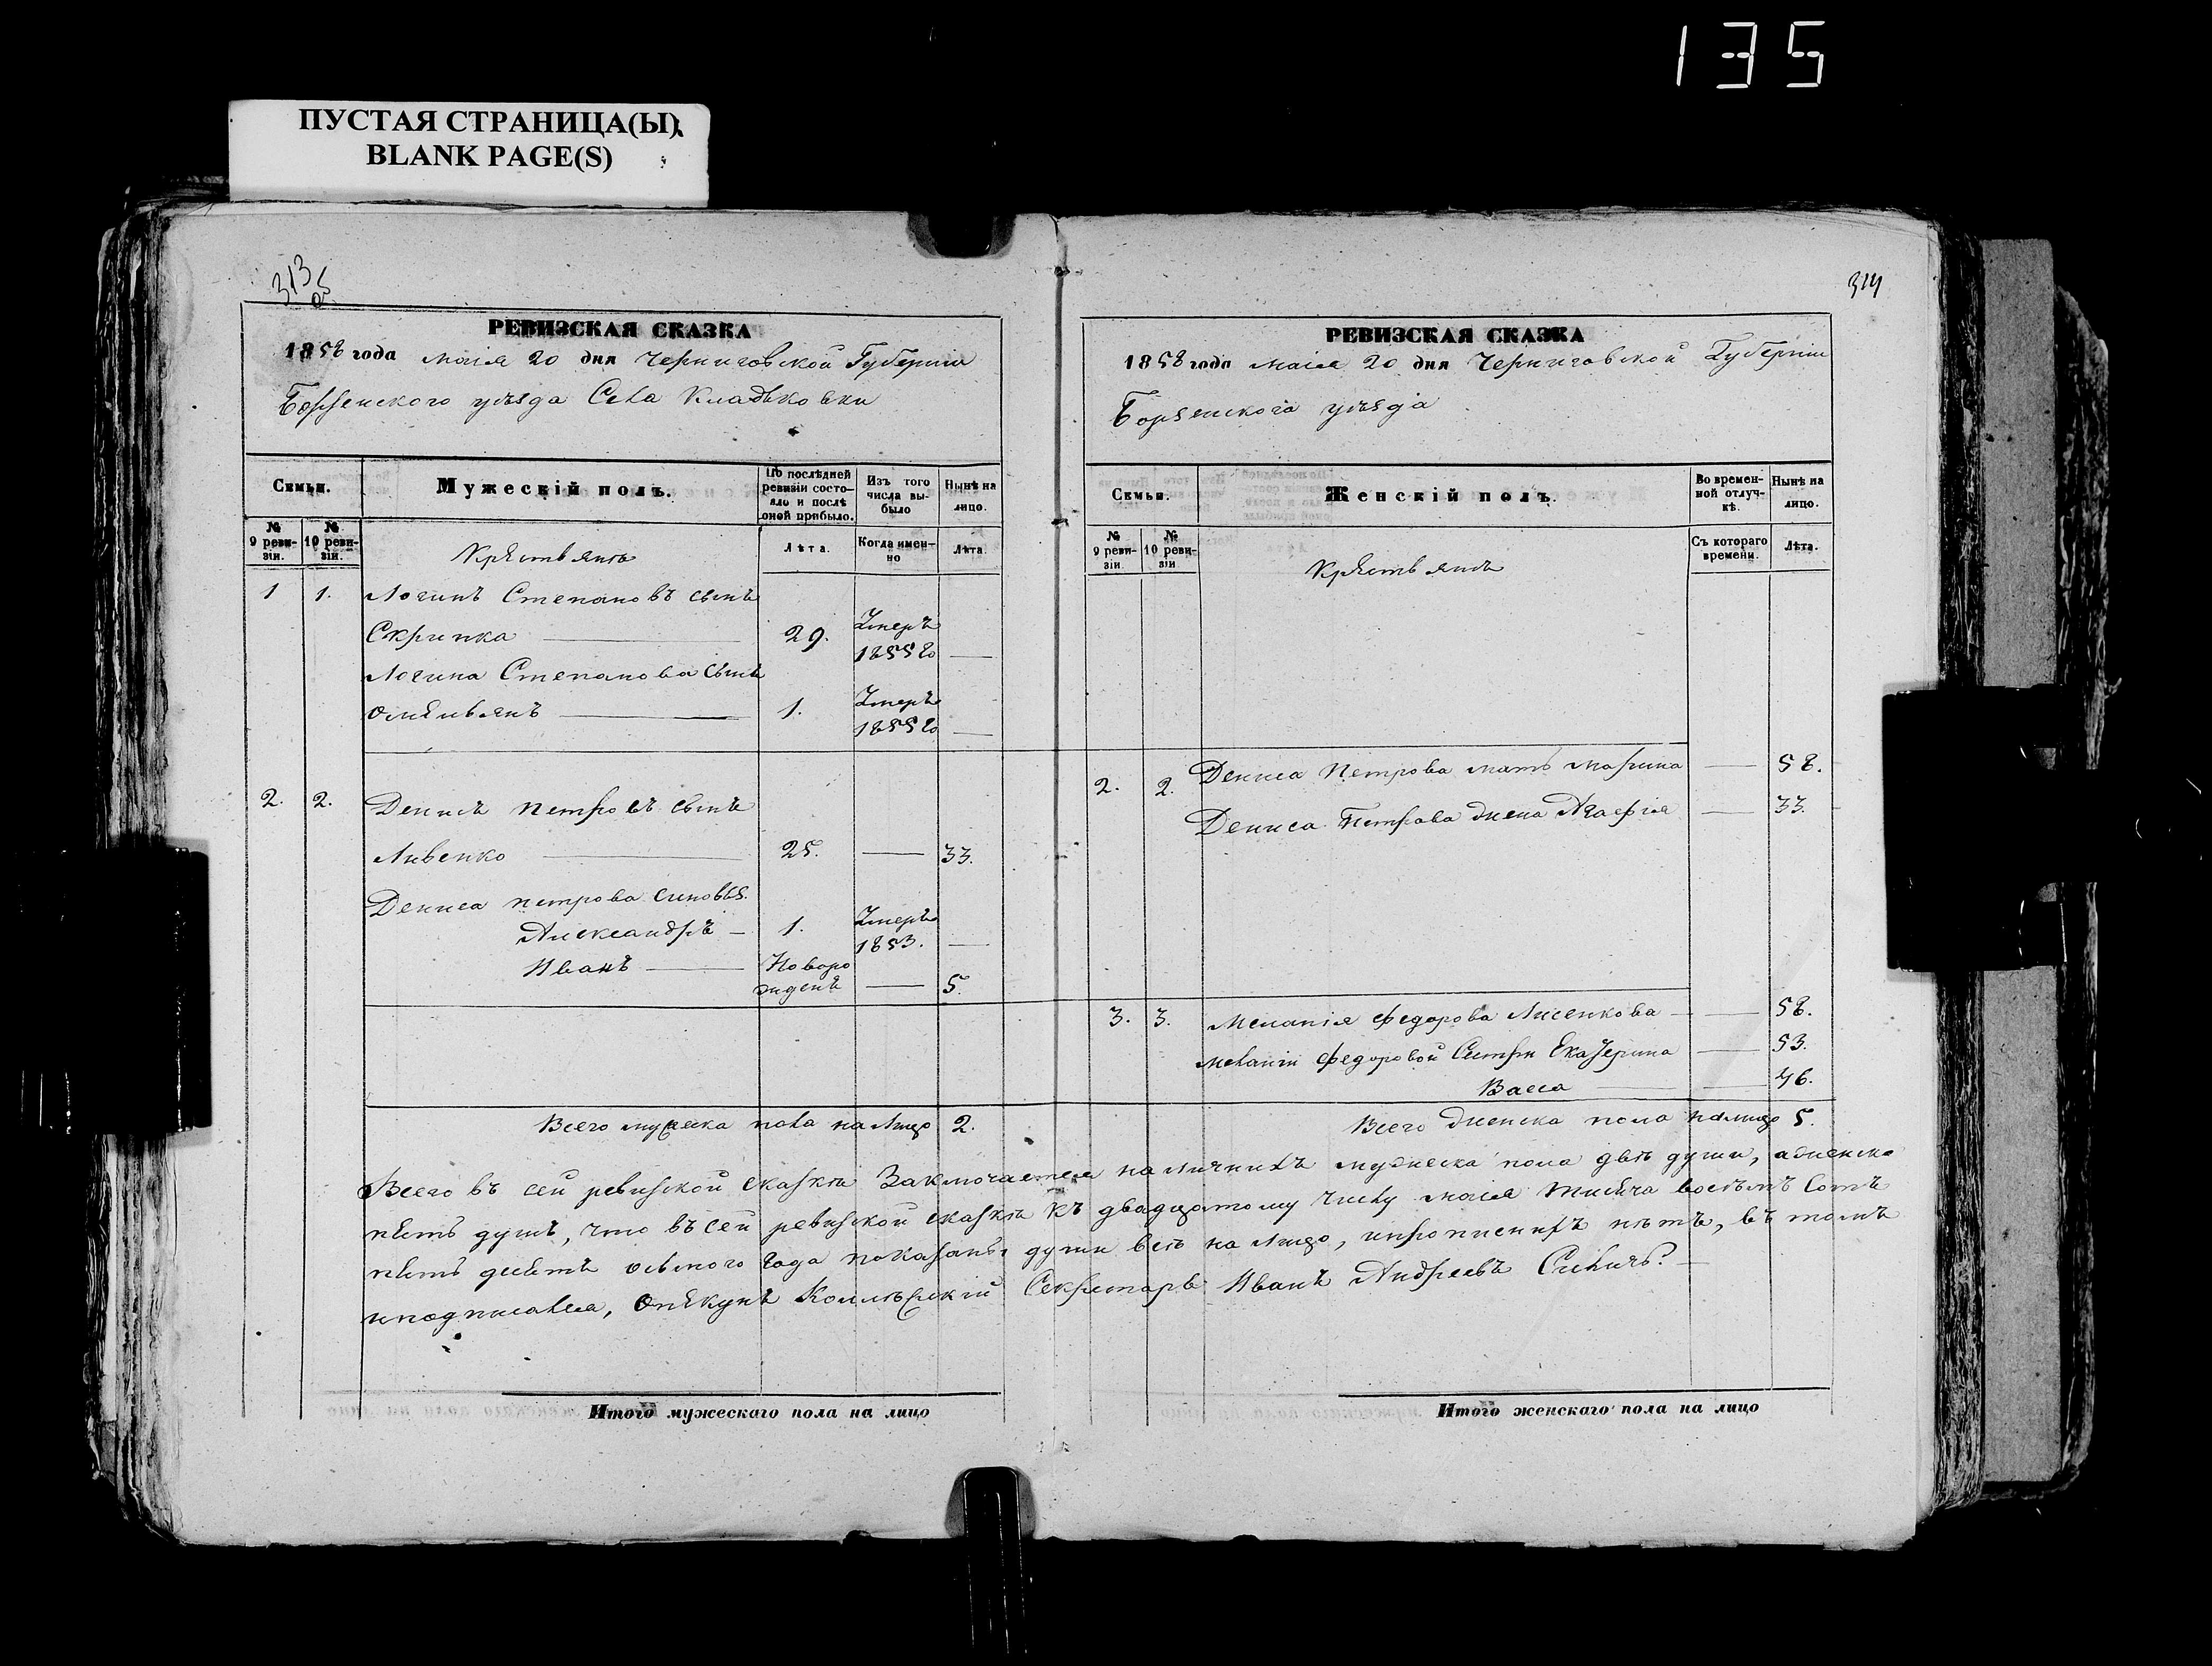 135
ПУСТАЯ СТРАНИЦА(Ы)
BLANK PAGE(S)
313
об
РЕВИЗСКАЯ СКАЗКА
1858 года маія 20 дня Черниговской Губерніи
Борзенского уѣзда Села Кладьковки
Семьи.
Мужескій полъ.
По послѣдней ревизіи состояло и послѣ оной прибыло.
Изъ того числа выбыло
Нынѣ на лицо.
№ 9 ревизіи.
№ 10 ревизіи.
Крѣстьянъ
Лѣта.
Когда именно
Лѣта.
1 1. Логинъ Степановъ сынъ
Скрипка 29. Умеръ 1855 го
Логина Степанова сынъ
Омельянъ 1. Умеръ 1855 го
2. 2. Денисъ Петровъ сынъ
Ливенко 25. 33.
Дениса петрова сыновья.
Александръ 1. Умеръ 1853.
Иванъ Новорожденъ 5.
Всего мужеска пола на Лицо 2.
314
РЕВИЗСКАЯ СКАЗКА
1858 года маія 20 дня Черниговской Губерніи
Борзенского уѣзда
Семьи.
Женскій полъ.
Во временной отлучкѣ.
Нынѣ на лицо.
№ 9 ревизіи
№ 10 ревизіи
Крѣстьянъ
Съ котораго времени.
Лѣта.
2. 2. Дениса Петрова мать Марина 58.
Дениса Петрова жена Агафія 33.
3. 3. Меланія федорова Лисенкова 58.
Меланіи федоровой Сестри Екатерина 53.
Васса 46.
Всего женска пола налицо 5.
Всего въ сей ревизской сказки Заключается наличнихъ мужеска пола двѣ души, аженска
пять душъ, что въ сей ревизской сказкѣ къ двадцятому числу маія тисяча восѣмъ Сотъ
пять десятъ осьмого года показаны души всѣ на Лицо, ипрописнихъ нѣтъ, въ томъ
иподписался, Опѣкунъ Коллѣжскій Секретарь Иванъ Андреевъ
Итого мужескаго пола на лицо
Итого женскаго пола на лицо